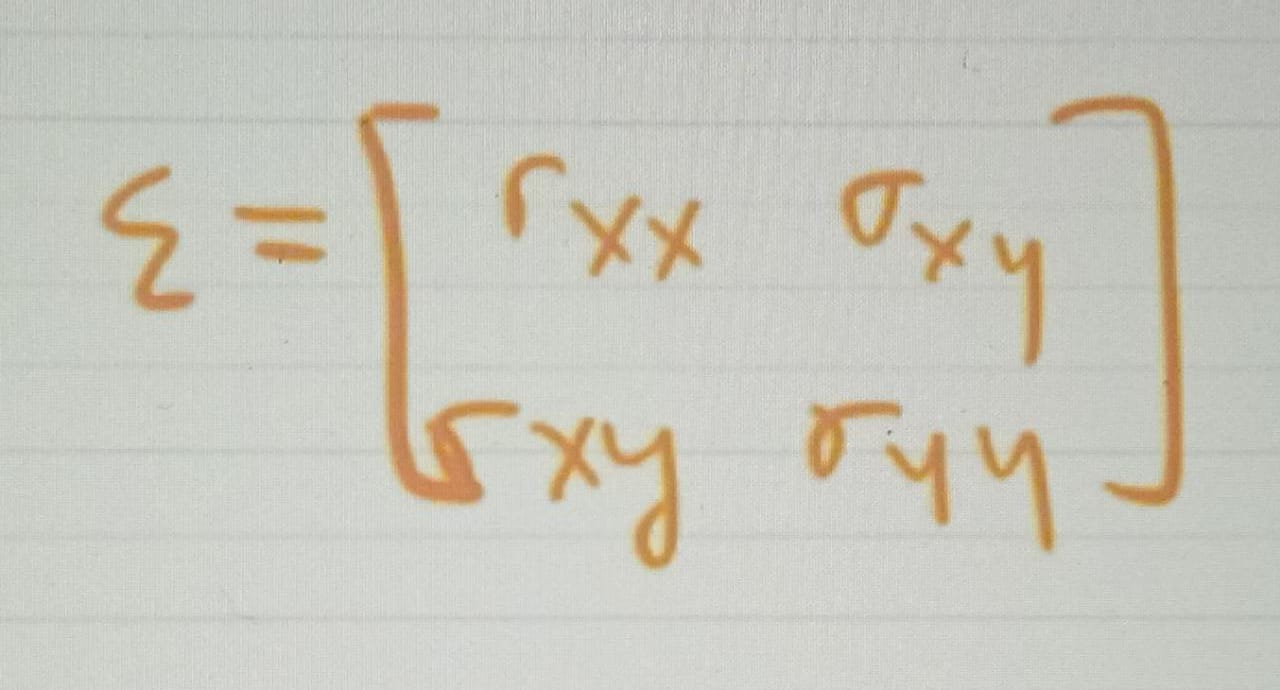 Σ = [ rxx σxy
σxy σyy ]